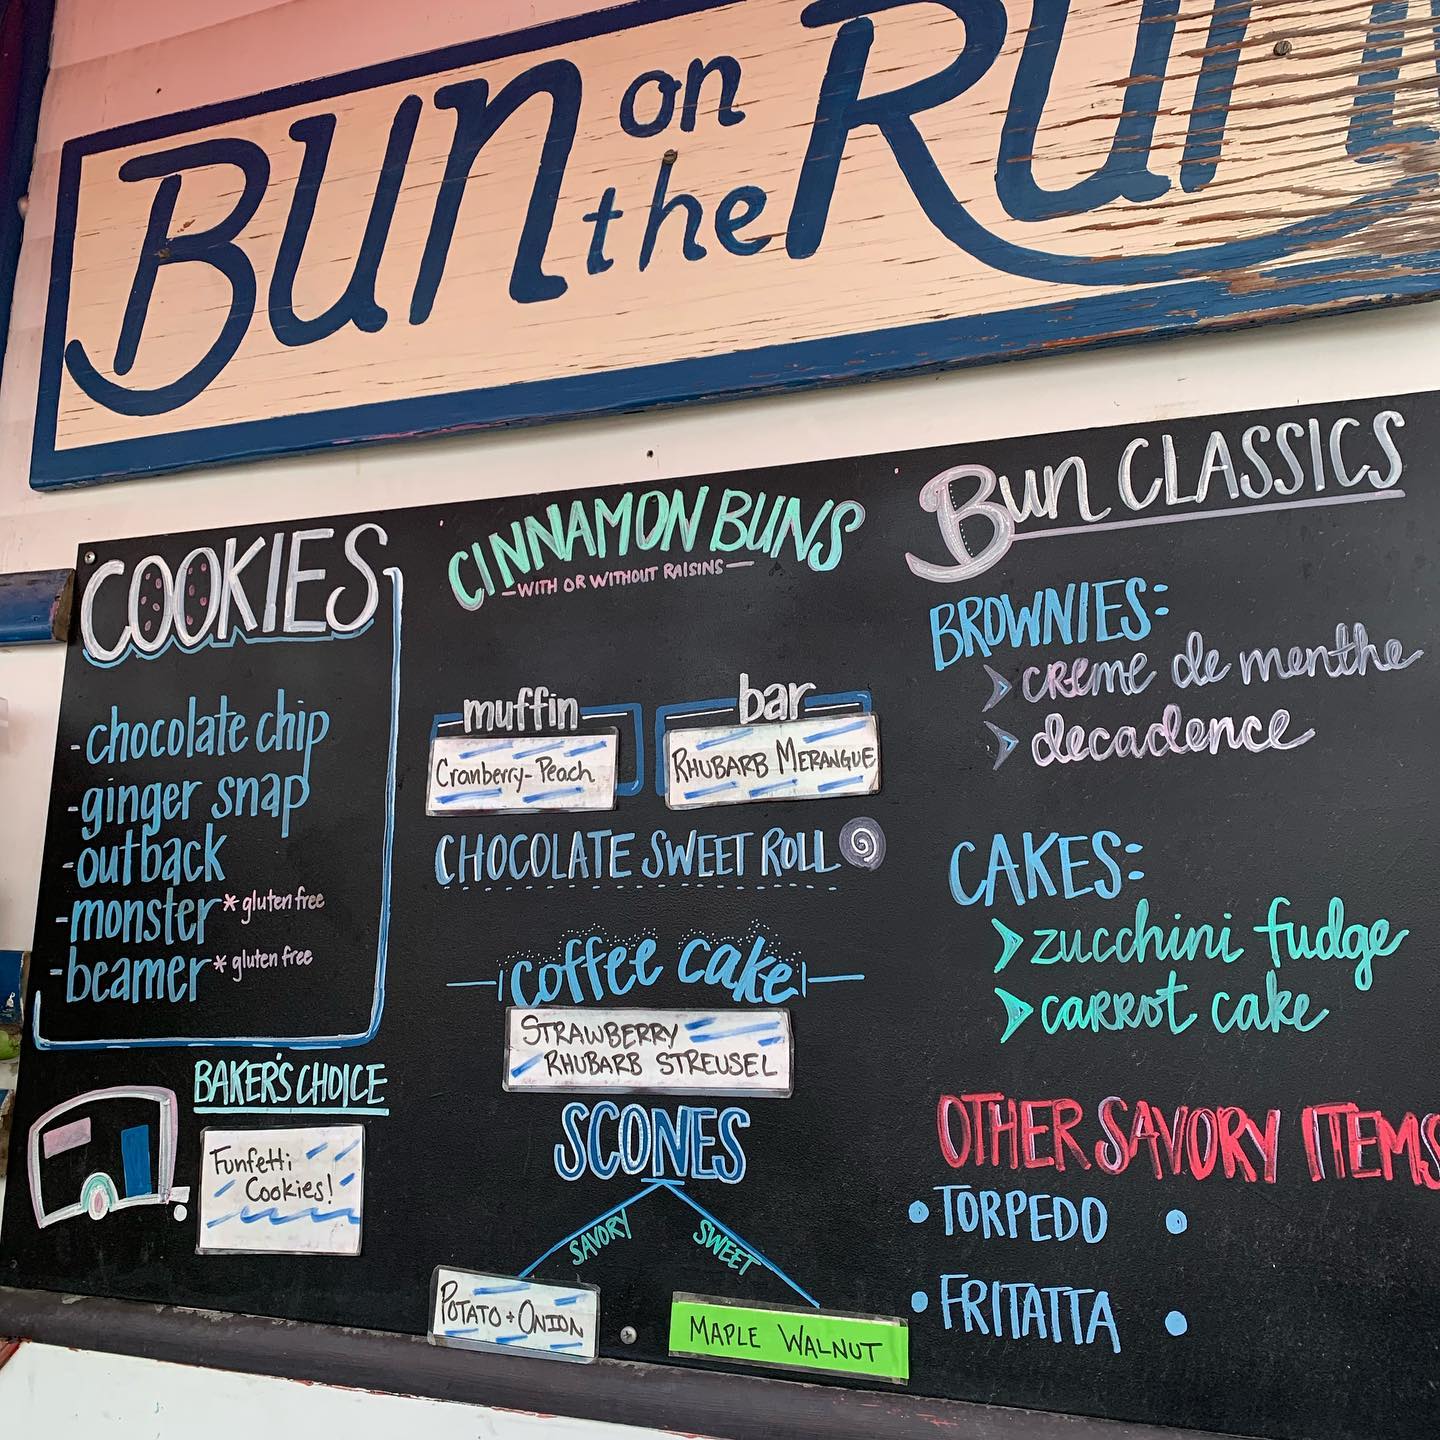 Bun on the Run
COOKIES
- chocolate chip
- ginger snap
- outback
- monster * gluten free
- beamer * gluten free
BAKER'S CHOICE
Funfetti
Cookies!
CINNAMON BUNS
- WITH OR WITHOUT RAISINS -
muffin
Cranberry-Peach
bar
RHUBARB MERANGUE
CHOCOLATE SWEET ROLL
coffee cake
STRAWBERRY
RHUBARB STREUSEL
SCONES
SAVORY
SWEET
POTATO + ONION
MAPLE WALNUT
Bun CLASSICS
BROWNIES:
> creme de menthe
> decadence
CAKES:
> zucchini fudge
> carrot cake
OTHER SAVORY ITEMS
• TORPEDO •
• FRITATTA •